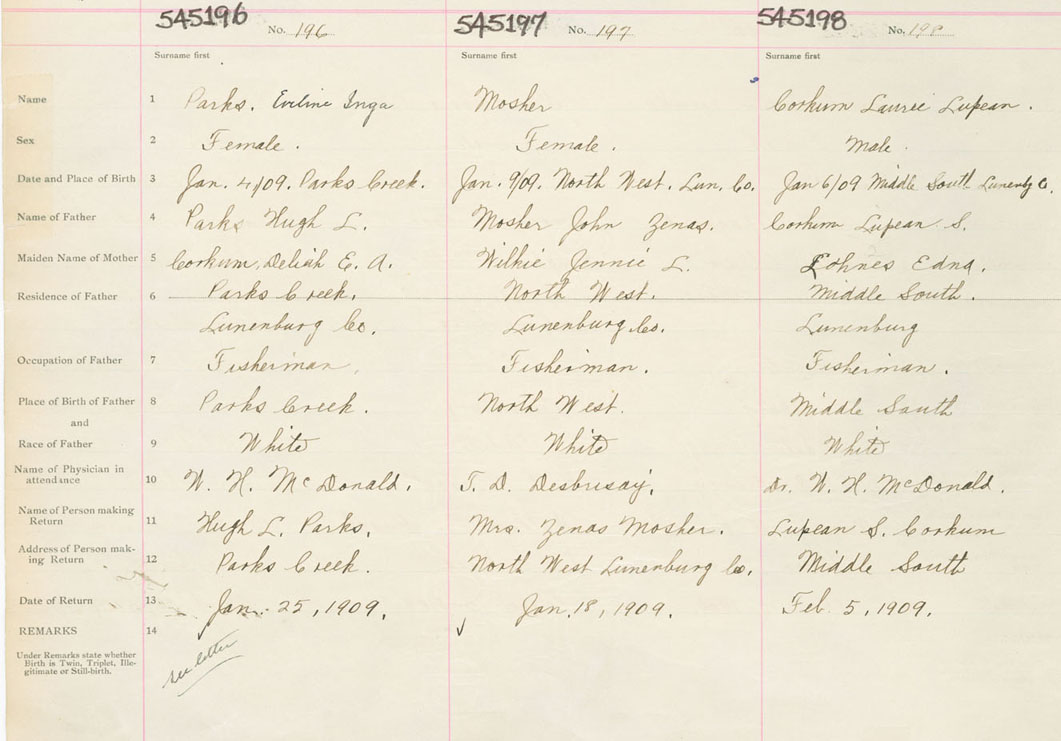 545196 No. 196 545197 No. 197 545198 No. 198
Surname first Surname first Surname first
Name 1 Parks. Eveline Inga Mosher Corkum Laurie Lupean.
Sex 2 Female. Female. Male.
Date and Place of Birth 3 Jan. 4/09. Parks Creek. Jan. 9/09. North West. Lun. Co. Jan 6/09 Middle South Lunenbg Co.
Name of Father 4 Parks Hugh L. Mosher John Zenas. Corkum Lupean S.
Maiden Name of Mother 5 Corkum, Deliah E. A. Wilkie Jennie L. Lohnes Edna.
Residence of Father 6 Parks Creek. North West. Middle South.
Lunenburg Co. Lunenburg Co. Lunenburg
Occupation of Father 7 Fisherman. Fisherman. Fisherman.
Place of Birth of Father 8 Parks Creek. North West. Middle South
and
Race of Father 9 White White White
Name of Physician in
attendance 10 W. H. McDonald. T. D. Desbrisay. Dr. W. H. McDonald.
Name of Person making
Return 11 Hugh L. Parks. Mrs. Zenas Mosher. Lupean S. Corkum
Address of Person mak-
ing Return 12 Parks Creek. North West Lunenburg Co. Middle South
Date of Return 13 Jan. 25, 1909. Jan. 18, 1909. Feb. 5, 1909.
REMARKS 14
Under Remarks state whether
Birth is Twin, Triplet, Ille-
gitimate or Still-birth.
see letter